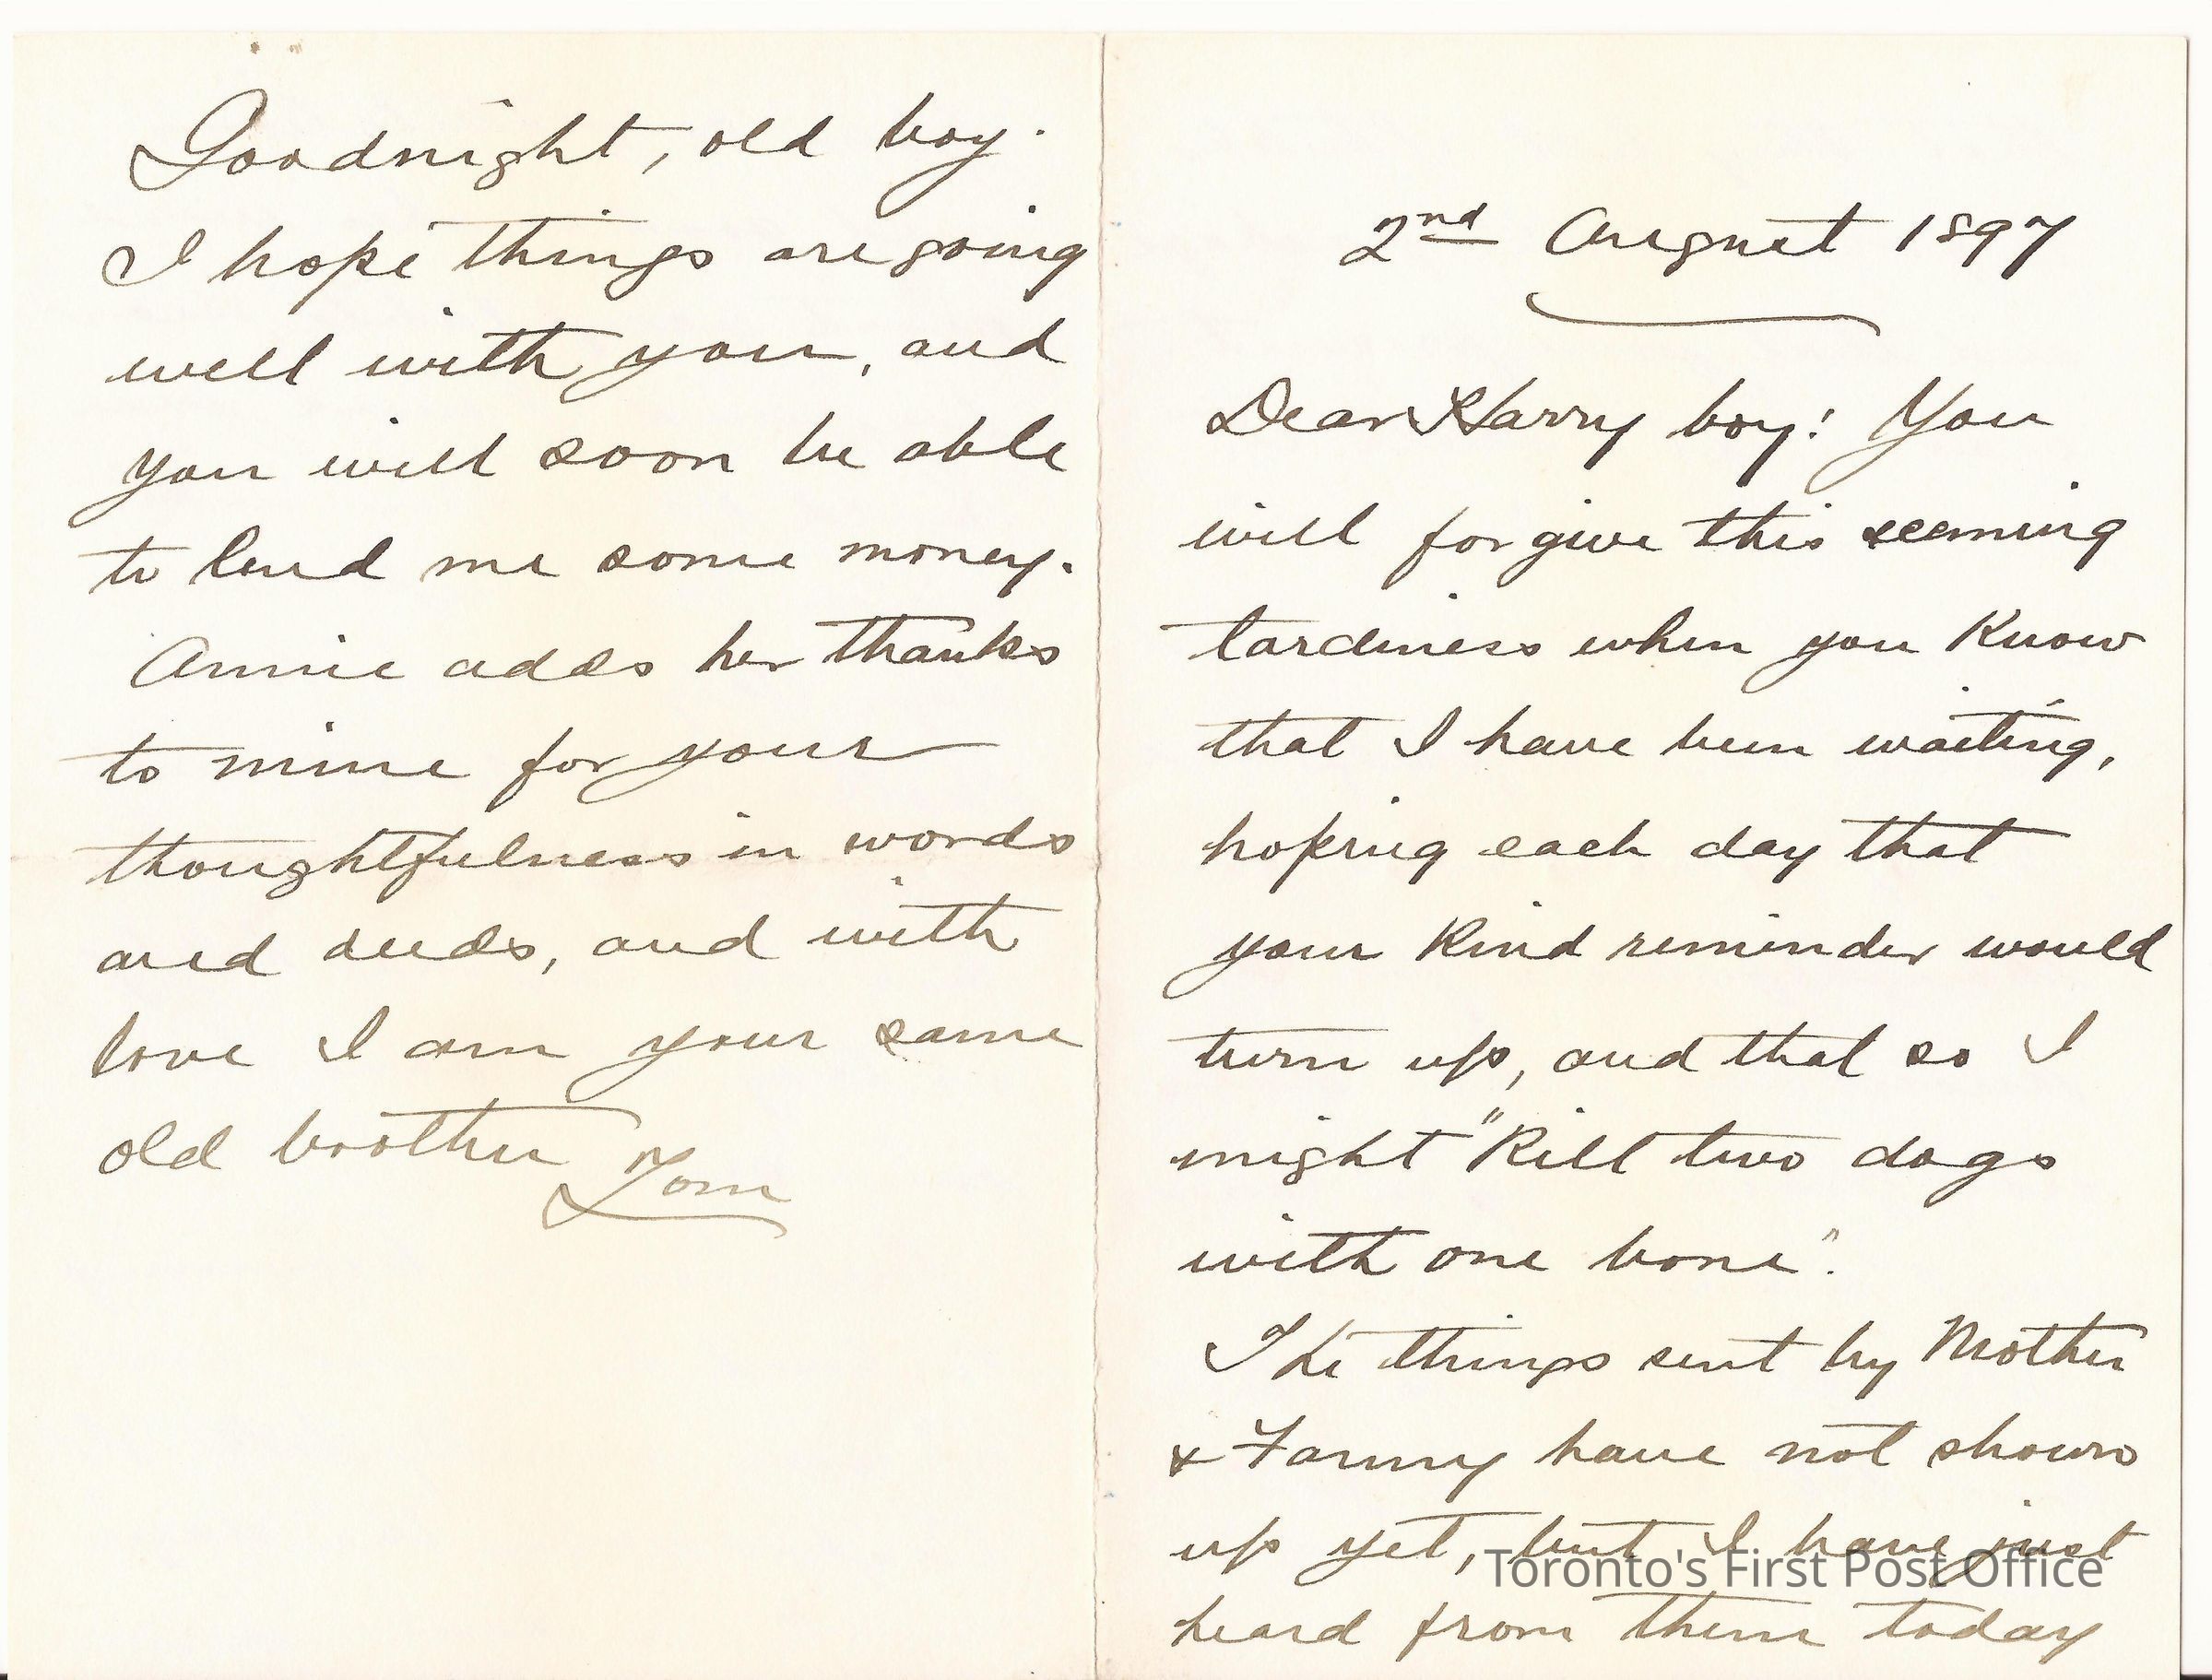 Goodnight, old boy.
I hope things are going
well with you, and
you will soon be able
to lend me some money.
Annie adds her thanks
to mine for your
thoughtfulness in words
and deeds, and with
love I am your same
old brother Tom
2nd August 1897
Dear Harry boy! You
will forgive this seeming
tardiness when you know
that I have been waiting,
hoping each day that
your kind reminder would
turn up, and that so I
might "Kill two dogs
with one bone".
The things sent by Mother
& Fanny have not shown
up yet, but I have just
Toronto's First Post Office
heard from them today